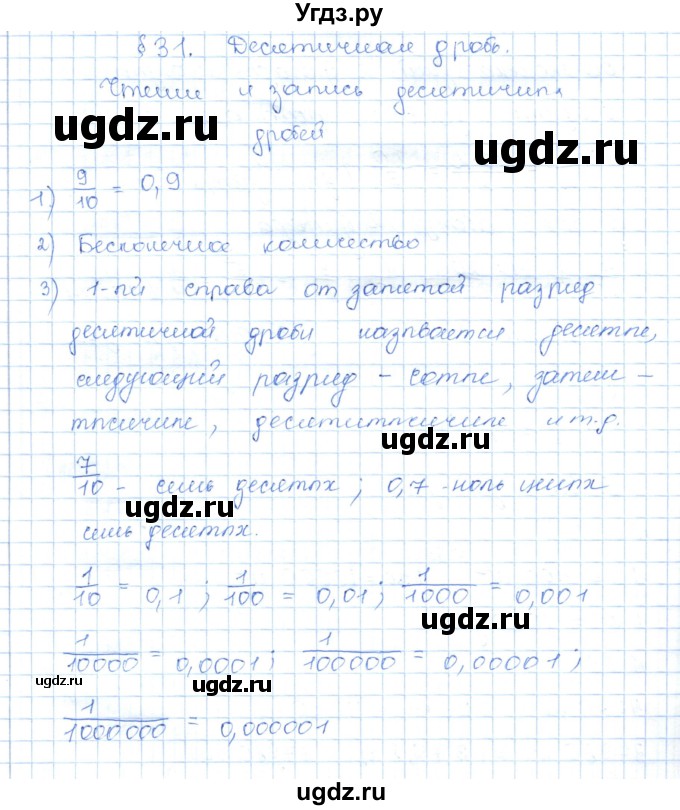 Угдз.ру
§ 31. Десятичная дробь.
Чтение и запись десятичных
ugdz.ru ugdz.ru
дробей
1) 9/10 = 0,9
2) Бесконечное количество
3) 1-ый справа от запятой разряд
десятичной дроби называется десятые,
следующий разряд - сотые, затем -
тысячные, десятитысячные и т.д.
ugdz.ru
7/10 - семь десятых; 0,7 - ноль целых
ugdz.ru
семь десятых.
1/10 = 0,1; 1/100 = 0,01; 1/1000 = 0,001
ugdz.ru
1/10000 = 0,0001; 1/100000 = 0,00001;
ugdz.ru ugdz.ru
1/1000000 = 0,000001
ugdz.ru ugdz.ru